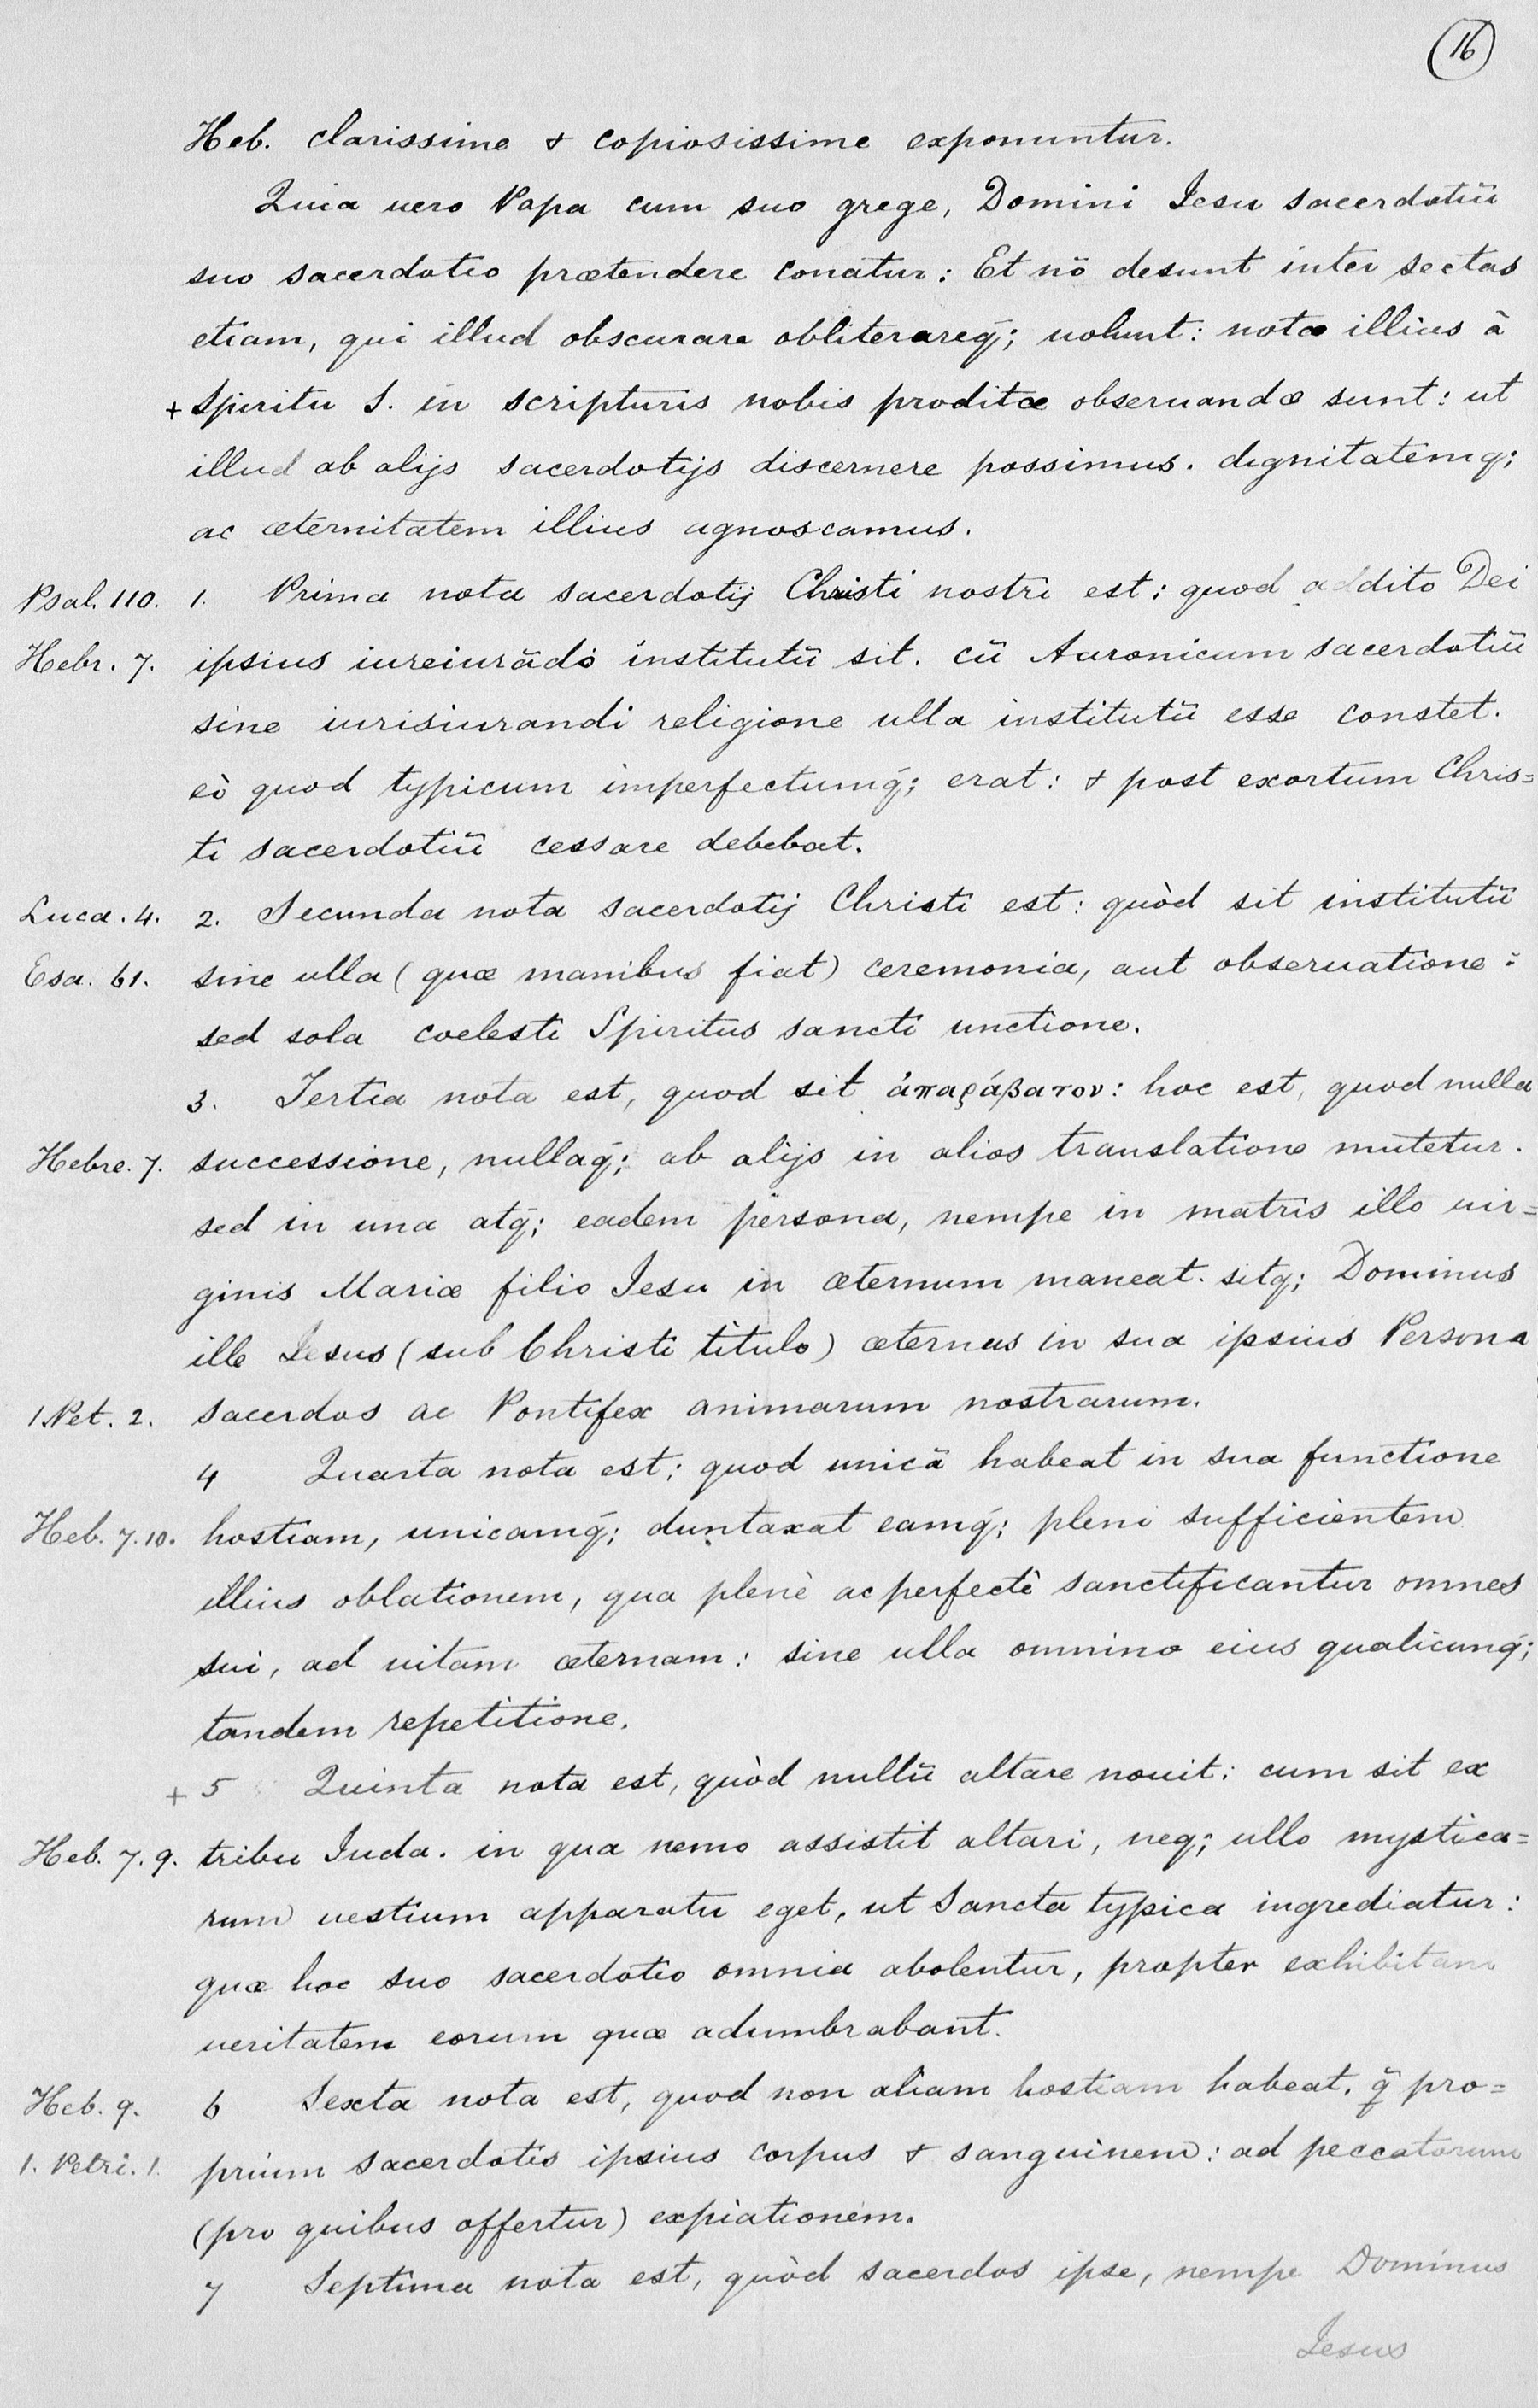 16
Heb. clarissime & copiosissime exponuntur.
Quia uero Papa cum suo grege, Domini Iesu sacerdotiū
suo sacerdotio prætendere conatur: Et nō desunt inter sectas
etiam, qui illud obscurare obliterareq́; uolunt: notæ illius à
+ Spiritu S. in scripturis nobis proditæ obseruandæ sunt: ut
illud ab alijs sacerdotijs discernere possimus. dignitatemq;
ac æternitatem illius agnoscamus.
Psal. 110. 1. Prima nota sacerdotij Christi nostri est: quod addito Dei
Hebr. 7. ipsius iureiurādo institutū sit. cū Aaronicum sacerdotiū
sine iurisiurandi religione ulla institutū esse constet.
eò quod typicum imperfectumq́; erat: & post exortum Chris=
ti sacerdotiū cessare debebat.
Luca. 4. 2. Secunda nota sacerdotij Christi est: quòd sit institutū
Esa. 61. sine ulla (quæ manibus fiat) ceremonia, aut obseruatione:
sed sola coelesti Spiritus sancti unctione.
3. Tertia nota est, quod sit ἀπαράβατον: hoc est, quod nulla
Hebre. 7. successione, nullaq́; ab alijs in alios translatione mutetur.
sed in una atq́; eadem persona, nempe in matris illo uir=
ginis Mariæ filio Iesu in æternum maneat. sitq; Dominus
ille Iesus (sub Christi titulo) æternus in sua ipsius Persona
1. Pet. 2. sacerdos ac Pontifex animarum nostrarum.
4 Quarta nota est: quod unicā habeat in sua functione
Heb. 7.10. hostiam, unicamq́; duntaxat eamq́; pleni sufficientem
illius oblationem, qua plenè ac perfectè sanctificantur omnes
sui, ad uitam æternam: sine ulla omnino eius qualicunq́;
tandem repetitione.
+ 5 Quinta nota est, quòd nullū altare nouit: cum sit ex
Heb. 7. 9. tribu Iuda. in qua nemo assistit altari, neq; ullo mystica=
rum uestium apparatu eget, ut Sancta typica ingrediatur:
quæ hoc suo sacerdotio omnia abolentur, propter exhibitam
ueritatem eorum quæ adumbrabant.
Heb. 9. 6 Sexta nota est, quod non aliam hostiam habeat, q̄ pro=
1. Petri. 1. prium sacerdotis ipsius corpus & sanguinem: ad peccatorum
(pro quibus offertur) expiationem.
7 Septima nota est, quòd sacerdos ipse, nempe Dominus
Iesus